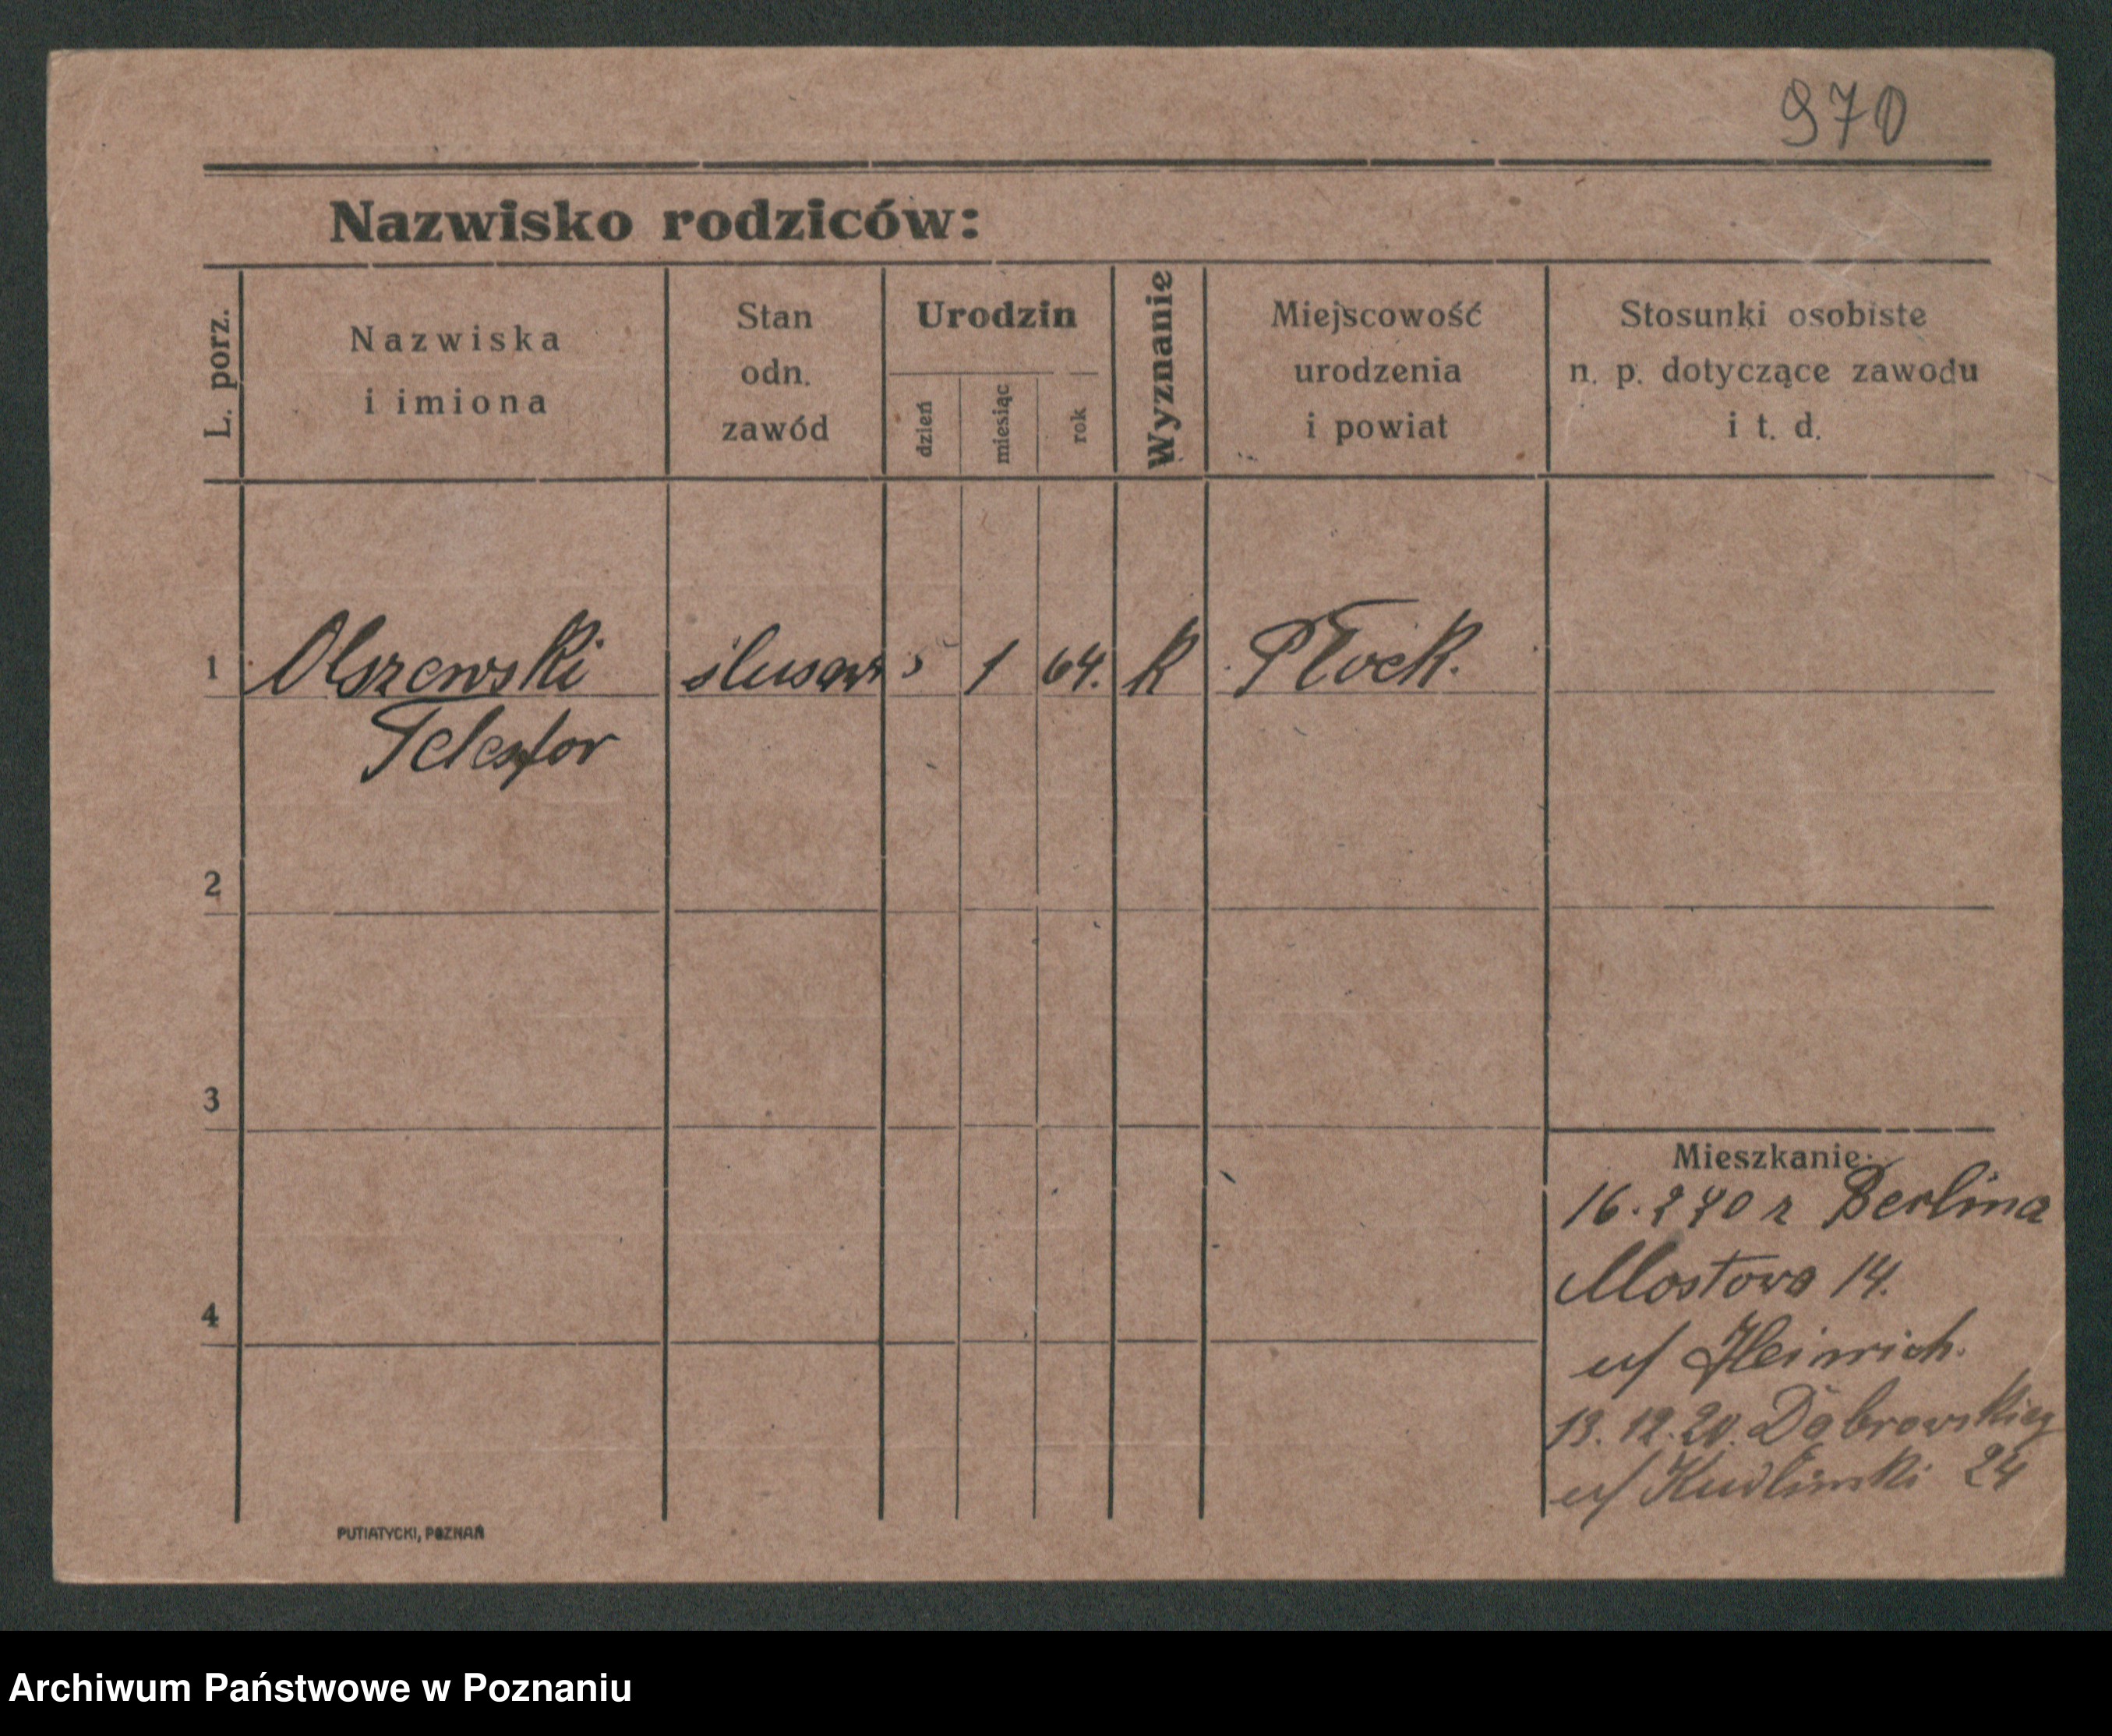 970
Nazwisko rodziców:
L. porz.
Nazwiska
i imiona
Stan
odn.
zawód
Urodzin
dzień
miesiąc
rok
Wyznanie
Miejscowość
urodzenia
i powiat
Stosunki osobiste
n. p. dotyczące zawodu
i t. d.
1 Olszewski ślusarz 5 1 64. k Płock.
Telesfor
2
3
4
Mieszkanie:
16. 20 z Berlina
Mostowa 14.
u/ Heinrich.
13. 12. 20. Dąbrowskieg
u/ 24
PUTIATYCKI, POZNAŃ
Archiwum Państwowe w Poznaniu